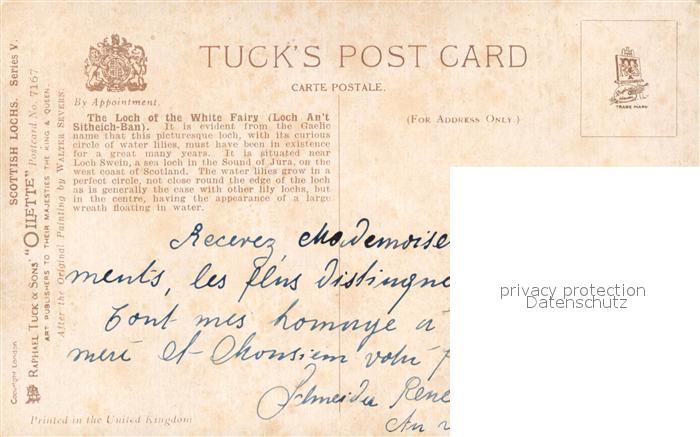 TUCK'S POST CARD
CARTE POSTALE.
By Appointment.
(FOR ADDRESS ONLY.)
TRADE MARK
The Loch of the White Fairy (Loch An't
Sitheich-Ban). It is evident from the Gaelic
name that this picturesque loch, with its curious
circle of water lilies, must have been in existence
for a great many years. It is situated near
Loch Swein, a sea loch in the Sound of Jura, on the
west coast of Scotland. The water lilies grow in a
perfect circle, not close round the edge of the loch
as is generally the case with other lily lochs, but
in the centre, having the appearance of a large
wreath floating in water.
SCOTTISH LOCHS. Series V.
RAPHAEL TUCK & SONS' "OILETTE" Postcard No. 7167
ART PUBLISHERS TO THEIR MAJESTIES THE KING & QUEEN.
After the Original Painting by WALTER SEVERN.
Copyright London
Recevez Mademoise
ments, les plus distingue
Tout mes homage a
mere et Monsieur votre
Schneider Rene
Au
Printed in the United Kingdom
privacy protection
Datenschutz